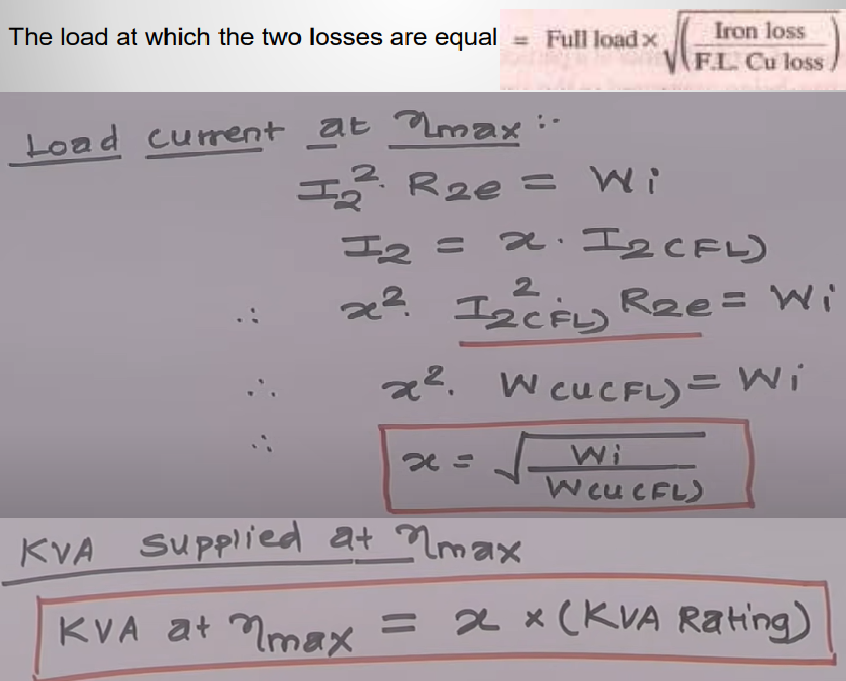 The load at which the two losses are equal = Full load × √(Iron loss / F.L. Cu loss)
Load current at ηmax :-
I₂². R₂e = Wi
I₂ = x · I₂(FL)
∴ x². I₂(FL)² R₂e = Wi
∴ x². Wcu(FL) = Wi
∴ x = √(Wi / Wcu(FL))
KVA supplied at ηmax
KVA at ηmax = x × (KVA Rating)